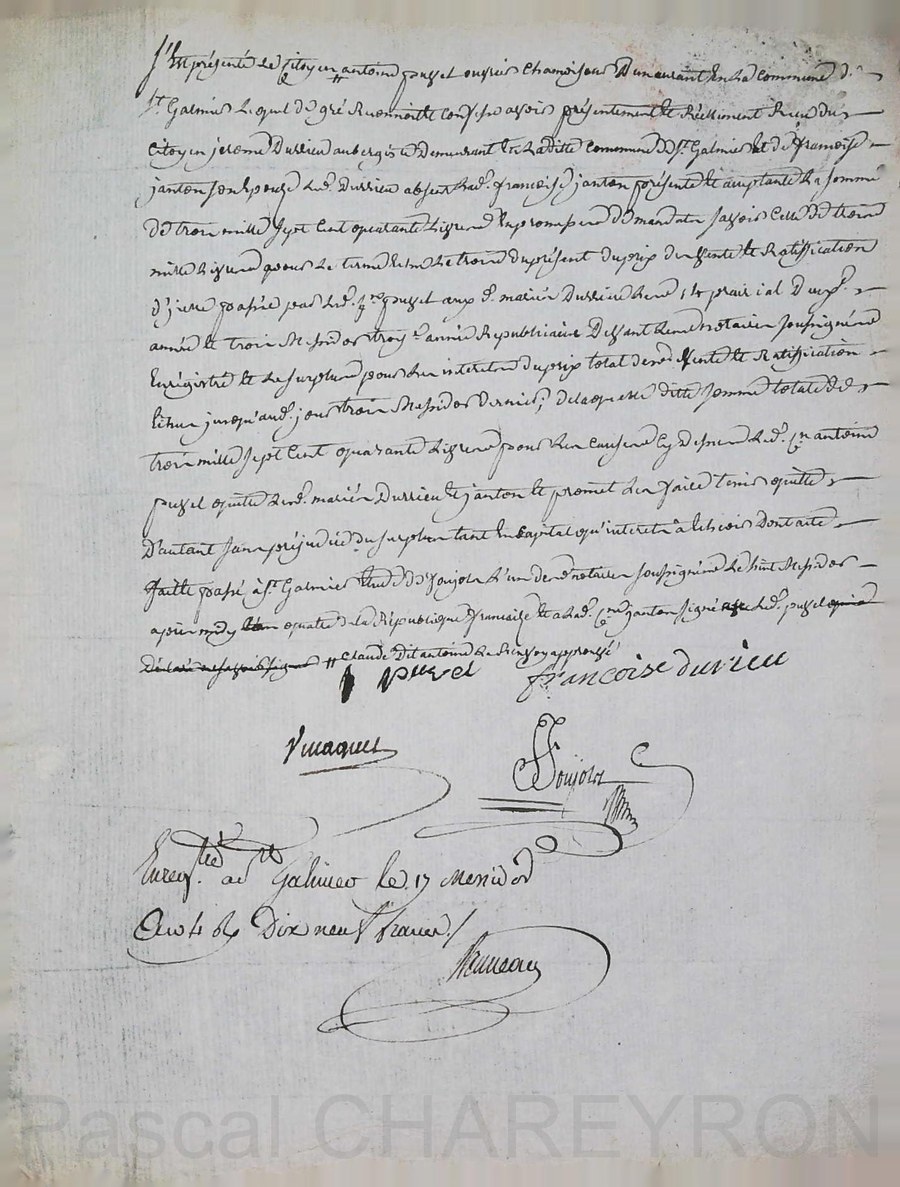 S'Est présenté le Citoyen # antoine puzel ouvrier chamoiseur Demeurant En La Commune de
St. Galmier Lequel de gré Reconnoit Confesse avoir présentement et Réellement Reçu du
Citoyen jerome Durrieu aubergiste Demeurant En Laditte Commune de St. Galmier et de françoise
janton son Epouze Led. Durrieu absent Lad. françoise janton présente et aceptante La somme
de trois mille sept Cent quarante Livres En promesses de mandats savoir Celle de trois
mille Livres pour Le terme Echu Le trois du présent du prix de Vente et Ratiffication
d'jcelle passée par Led. puzel aux d. mariés Durrieu Le 14 prairial Dup.
année et trois Messidor troise. année Républicaine Devant Les Notaires soussignés
Enregistré et Le surplus pour Les interets du prix total desd. Vente et Ratiffication
Echus jusqu'aud. jour trois Messidor Dernier; de laquelle ditte somme totale de
trois mille sept Cent quarante Livres pour Les Causes Cy dessus Led. Cn. antoine
puzel quitte Lesd. mariés Durrieu et janton et promet Les faire tenir quittes
D'autant sans préjudice du surplus tant En Capital qu'interets à Echeoir Dont acte
faitte passé à St. Galmier Etude de Poujolz L'un des Notaires soussignés Le huit Messidor
après midy L'an quatre de la République française et a Lad. Cne. janton signé Led. puzel
Déclaré ne savoir signer # Claude Dit antoine Le Renvoy approuvé
puzel françoise durieu
Vinaguet Poujolz
Enregtré. a St Galmier le 17 Messidor
An 4 Dix neuf francs /